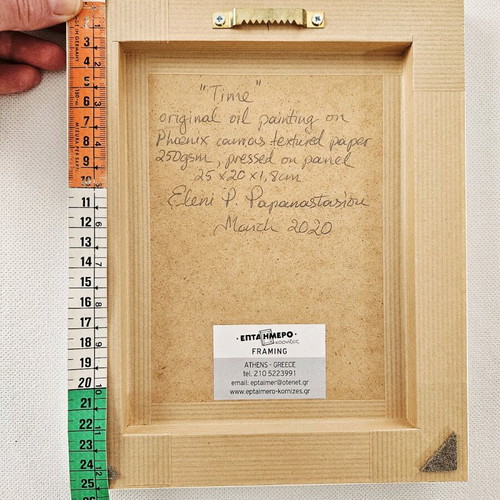 "Time"
original oil painting on
Phoenix canvas textured paper
250gsm, pressed on panel
25 x 20 x 1,8cm
Eleni P. Papanastasiou
March 2020
ΕΠΤΑΗΜΕΡΟ
κορνίζες
FRAMING
ATHENS - GREECE
tel. 210 5223991
email: eptaimer@otenet.gr
www.eptaimero-kornizes.gr
3
4
5
6
7
8
9
11
12
13
14
15
16
17
18
19
20
21
22
23
24
25